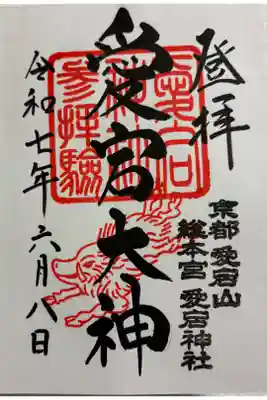 登拝
京都 愛宕山
総本宮 愛宕神社
愛宕大神
令和七年六月八日
愛宕
参拝験